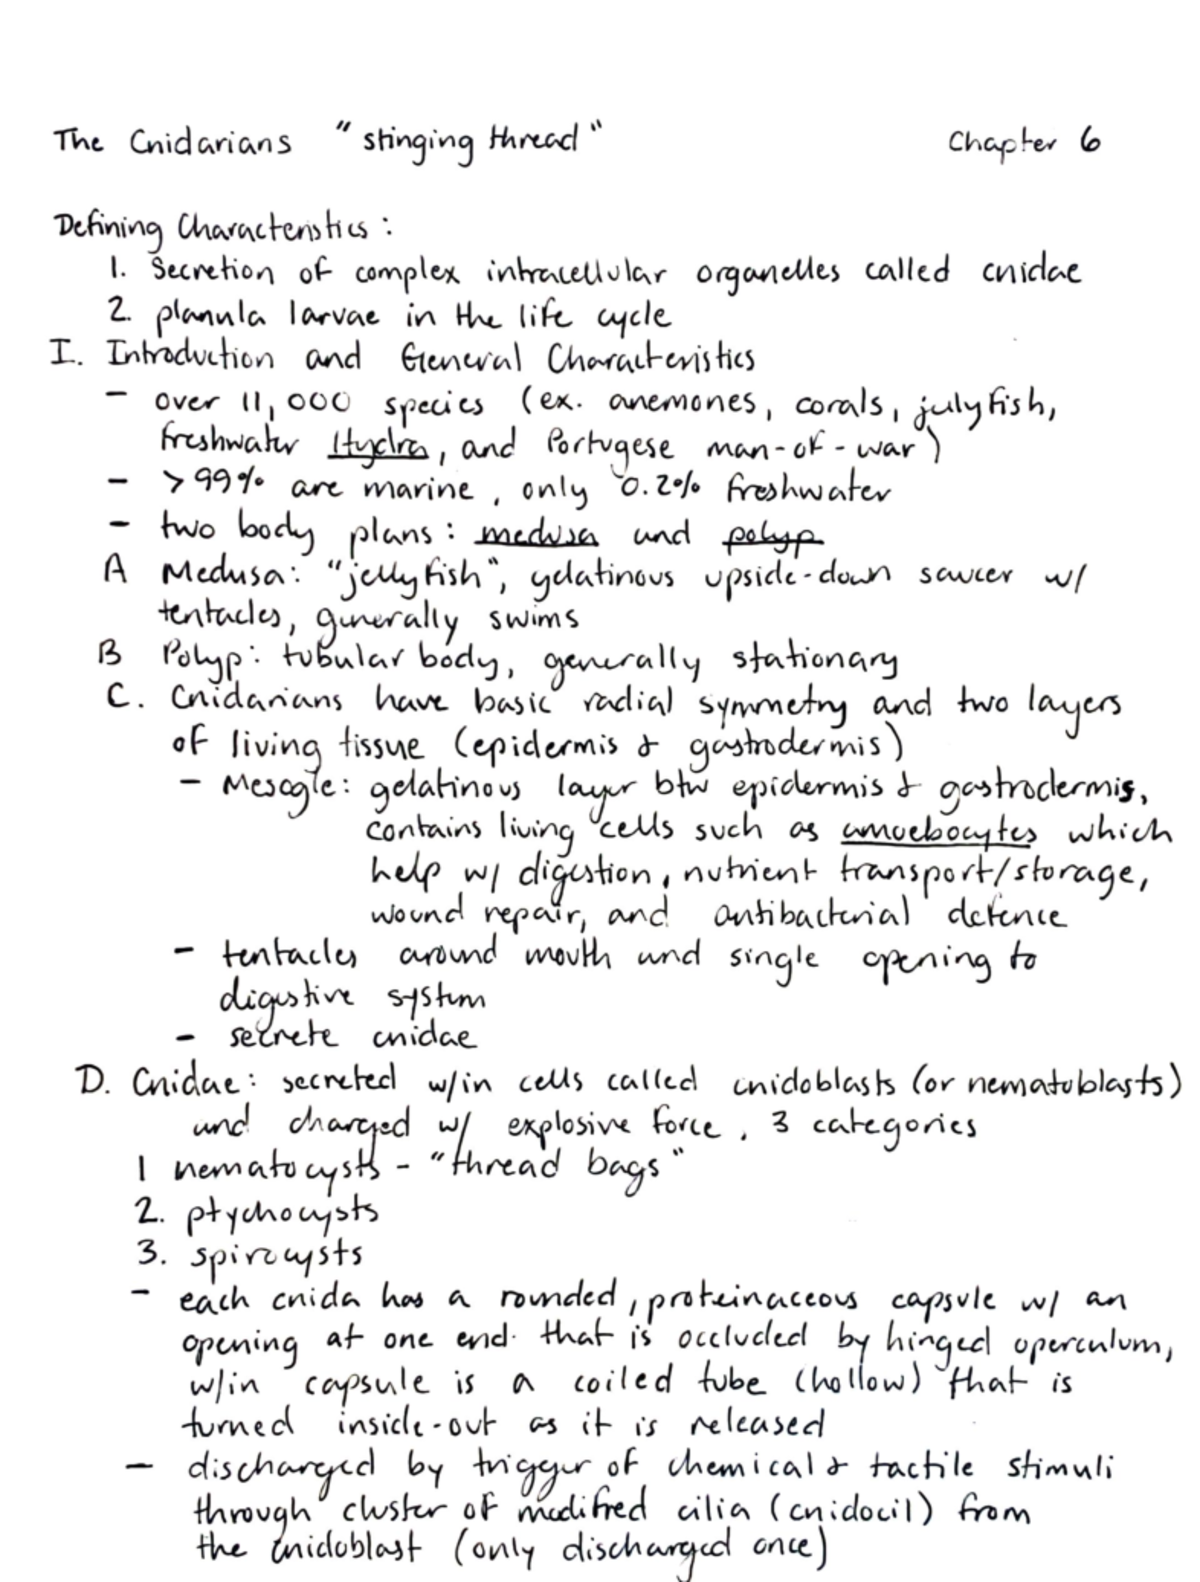 The Cnidarians "stinging thread" Chapter 6
Defining Characteristics:
1. Secretion of complex intracellular organelles called cnidae
2. planula larvae in the life cycle
I. Introduction and General Characteristics
- over 11,000 species (ex. anemones, corals, julyfish,
freshwater Hydra, and Portugese man-of-war)
- >99% are marine, only 0.2% freshwater
- two body plans: medusa and polyp
A Medusa: "jellyfish", gelatinous upside-down saucer w/
tentacles, generally swims
B Polyp: tubular body, generally stationary
C. Cnidarians have basic radial symmetry and two layers
of living tissue (epidermis & gastrodermis)
- Mesogle: gelatinous layer btw epidermis & gastrodermis,
contains living cells such as amoebocytes which
help w/ digestion, nutrient transport/storage,
wound repair, and antibacterial defence
- tentacles around mouth and single opening to
digestive system
- secrete cnidae
D. Cnidae: secreted w/in cells called cnidoblasts (or nematoblasts)
and charged w/ explosive force, 3 categories
1 nematocysts - "thread bags"
2. ptychocysts
3. spirocysts
- each cnida has a rounded, proteinaceous capsule w/ an
opening at one end that is occluded by hinged operculum,
w/in capsule is a coiled tube (hollow) that is
turned inside-out as it is released
- discharged by trigger of chemical & tactile stimuli
through cluster of modified cilia (cnidocil) from
the cnidoblast (only discharged once)